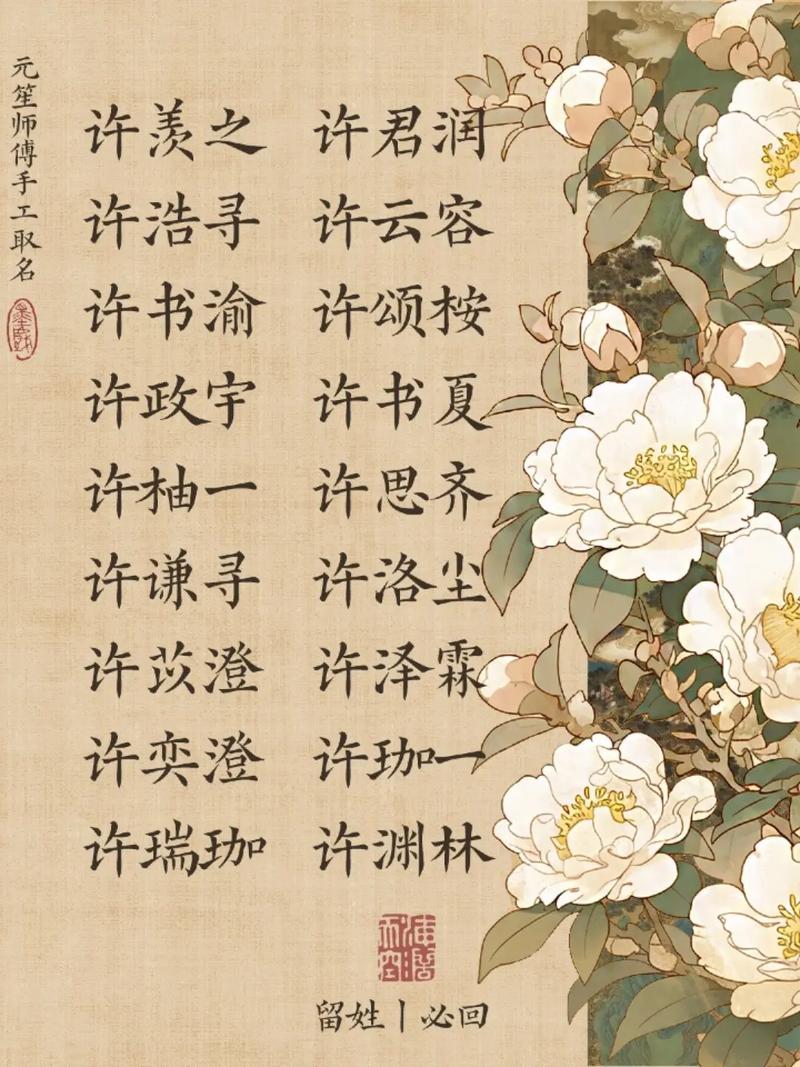 元笙师傅手工取名
许羡之 许君润
许浩寻 许云容
许书渝 许颂桉
许政宇 许书夏
许柚一 许思齐
许谦寻 许洛尘
许苡澄 许泽霖
许奕澄 许珈一
许瑞珈 许渊林
留姓丨必回